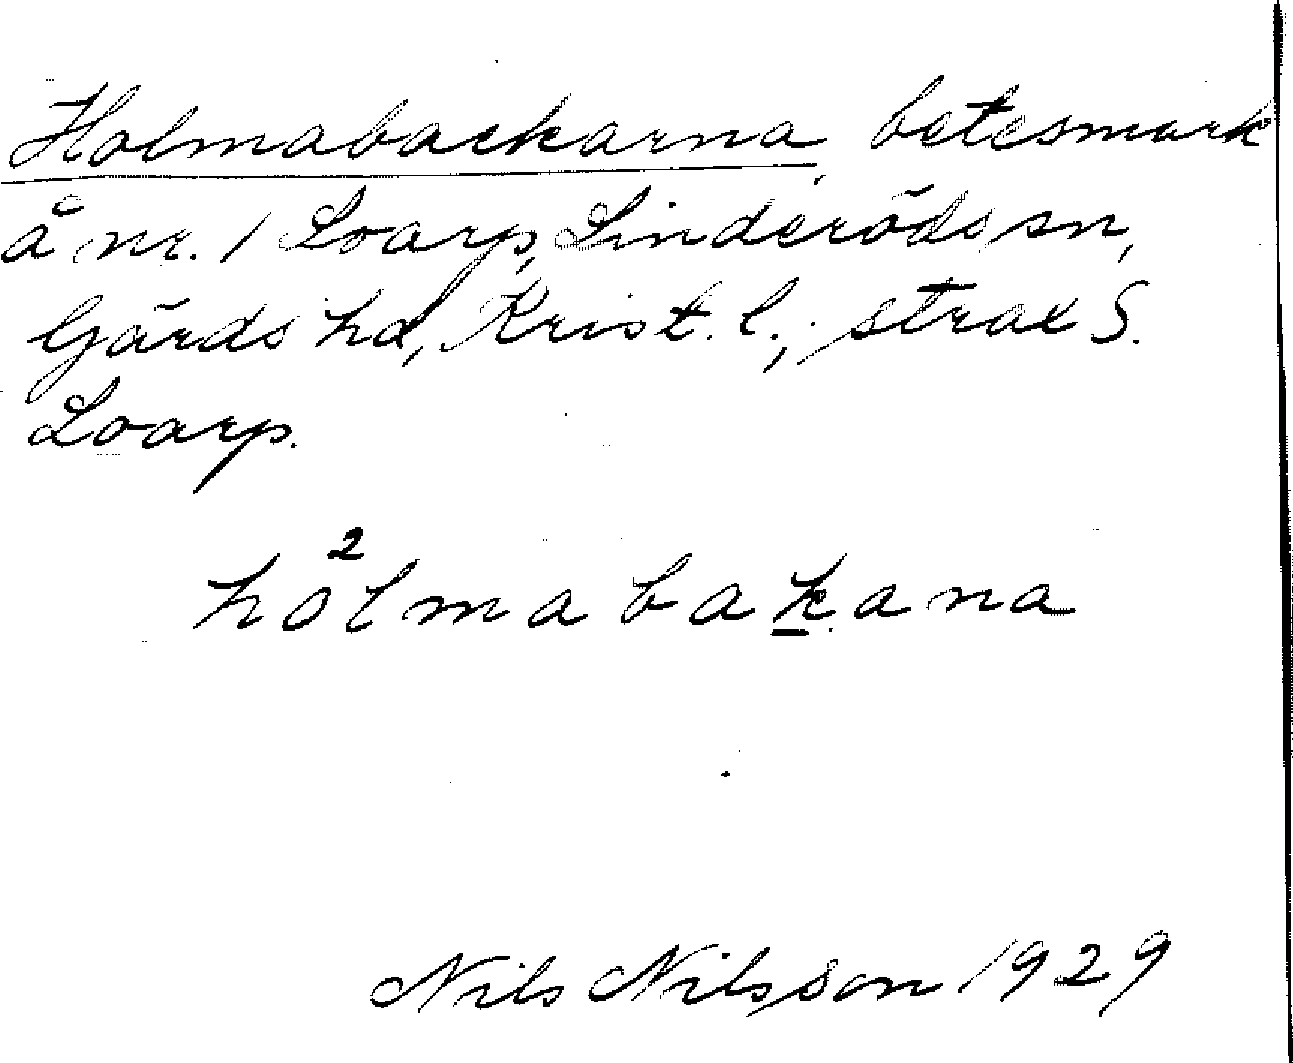 Holmabackarna, betesmark
å nr. 1 Loarp, Linderöds sn,
Gärds hd, Krist. l.; strax S.
Loarp.
hò²lmabaḵana
Nils Nilsson 1929